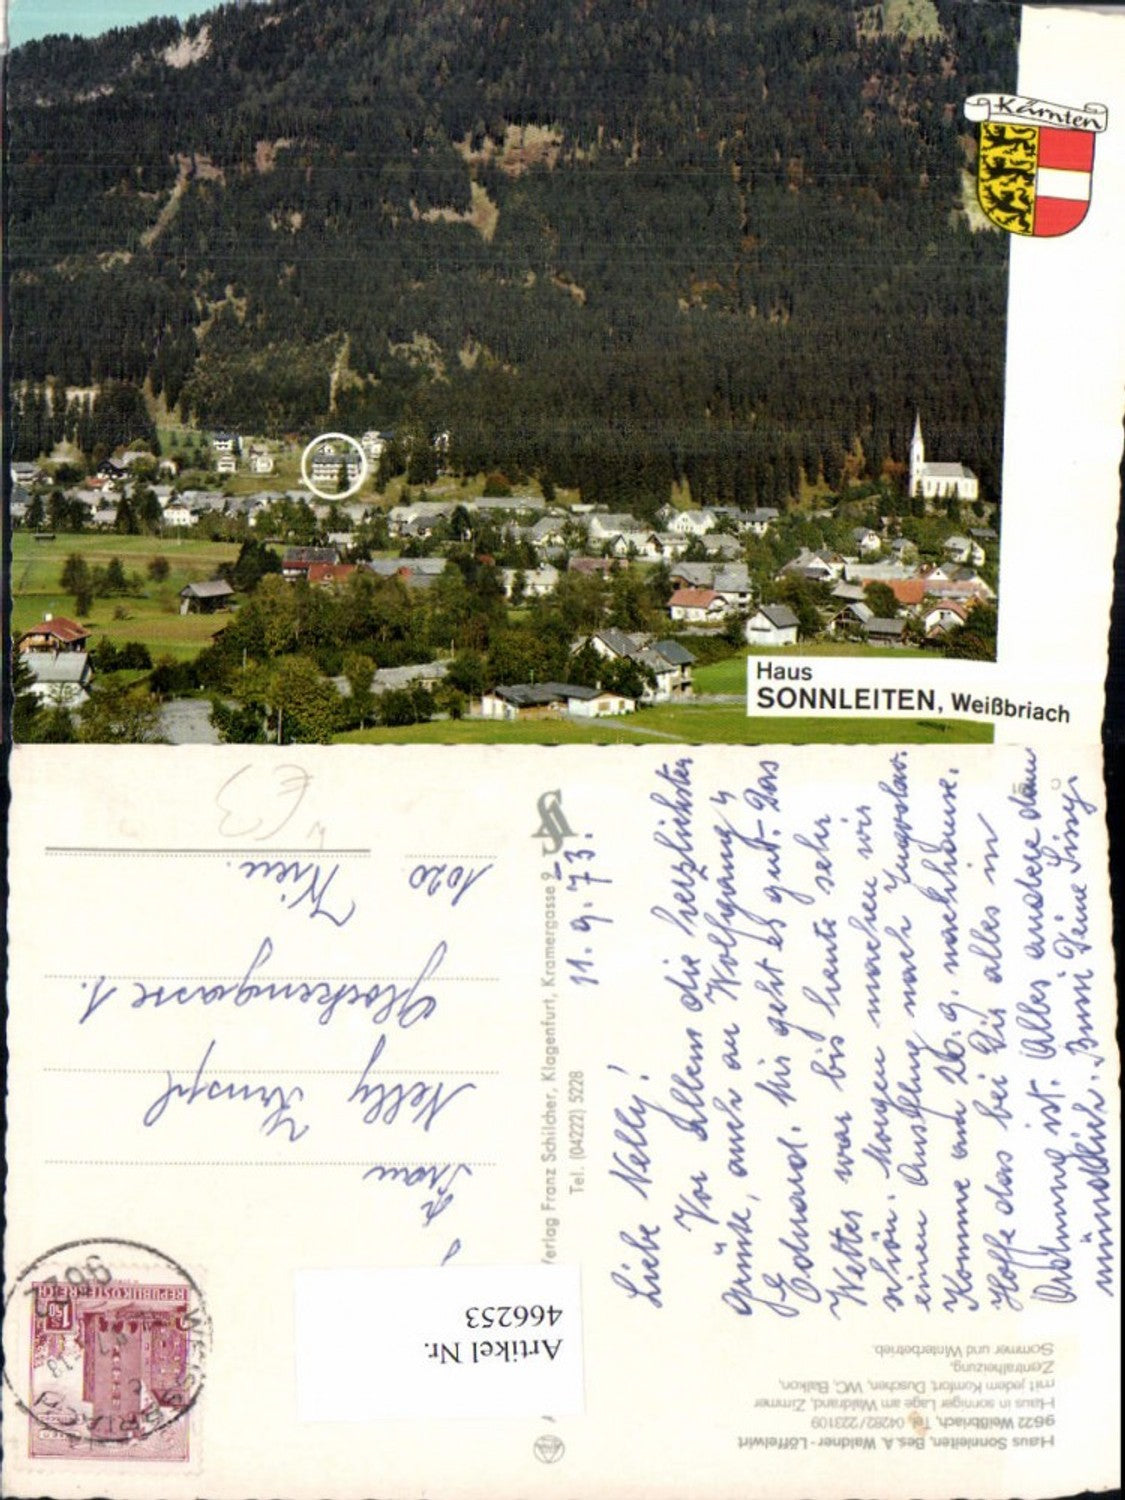 Kärnten
Haus
SONNLEITEN, Weißbriach
Haus Sonnleiten, Bes. A. Waldner - Löffelwirt
9622 Weißbriach, Tel. 04282/223109
Haus in sonniger Lage am Waldrand, Zimmer
mit jedem Komfort, Duschen, WC, Balkon,
Zentralheizung.
Sommer und Winterbetrieb.
11. 9. 73.
Liebe Nelly!
Vor Allem die herzlichsten
Grüße, auch an Wolfgang u
Eduard. Mir geht es gut. Das
Wetter war bis heute sehr
schön. Morgen machen wir
einen Ausflug nach Jugoslav.
Komme am 26. 9. nachhause.
Hoffe das bei Dir alles in
Ordnung ist. Alles andere dann
mündlich. Bussi Deine Sissy.
Verlag Franz Schilcher, Klagenfurt, Kramergasse 9
Tel. (04222) 5228
REPUBLIK ÖSTERREICH
1.50
9622
WEISSBRIACH
Artikel Nr.
466253
Frau
Nelly
Glockengasse 1.
1020 Wien.